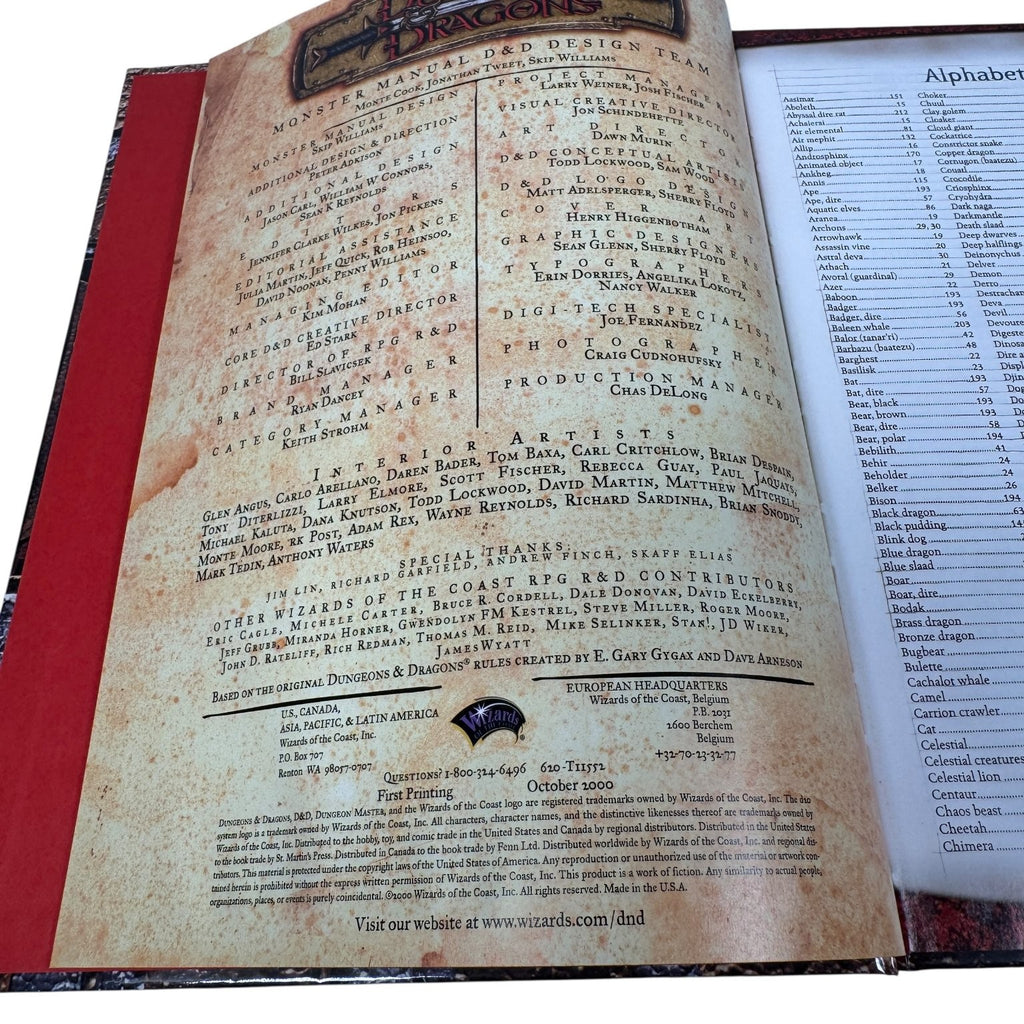 DRAGONS
MONSTER MANUAL D&D DESIGN TEAM
MONTE COOK, JONATHAN TWEET, SKIP WILLIAMS
MONSTER MANUAL DESIGN
SKIP WILLIAMS
ADDITIONAL DESIGN & DIRECTION
PETER ADKISON
ADDITIONAL DESIGN
JASON CARL, WILLIAM W CONNORS,
SEAN K REYNOLDS
EDITORS
JENNIFER CLARKE WILKES, JON PICKENS
EDITORIAL ASSISTANCE
JULIA MARTIN, JEFF QUICK, ROB HEINSOO,
DAVID NOONAN, PENNY WILLIAMS
MANAGING EDITOR
KIM MOHAN
CORE D&D CREATIVE DIRECTOR
ED STARK
DIRECTOR OF RPG R&D
BILL SLAVICSEK
BRAND MANAGER
RYAN DANCEY
CATEGORY MANAGER
KEITH STROHM
PROJECT MANAGERS
LARRY WEINER, JOSH FISCHER
VISUAL CREATIVE DIRECTOR
JON SCHINDEHETTE
ART DIRECTOR
DAWN MURIN
D&D CONCEPTUAL ARTISTS
TODD LOCKWOOD, SAM WOOD
D&D LOGO DESIGN
MATT ADELSPERGER, SHERRY FLOYD
COVER ART
HENRY HIGGENBOTHAM
GRAPHIC DESIGNERS
SEAN GLENN, SHERRY FLOYD
TYPOGRAPHERS
ERIN DORRIES, ANGELIKA LOKOTZ,
NANCY WALKER
DIGI-TECH SPECIALIST
JOE FERNANDEZ
PHOTOGRAPHER
CRAIG CUDNOHUFSKY
PRODUCTION MANAGER
CHAS DELONG
INTERIOR ARTISTS
GLEN ANGUS, CARLO ARELLANO, DAREN BADER, TOM BAXA, CARL CRITCHLOW, BRIAN DESPAIN,
TONY DITERLIZZI, LARRY ELMORE, SCOTT FISCHER, REBECCA GUAY, PAUL JAQUAYS,
MICHAEL KALUTA, DANA KNUTSON, TODD LOCKWOOD, DAVID MARTIN, MATTHEW MITCHELL,
MONTE MOORE, RK POST, ADAM REX, WAYNE REYNOLDS, RICHARD SARDINHA, BRIAN SNODDY,
MARK TEDIN, ANTHONY WATERS
SPECIAL THANKS:
JIM LIN, RICHARD GARFIELD, ANDREW FINCH, SKAFF ELIAS
OTHER WIZARDS OF THE COAST RPG R&D CONTRIBUTORS
ERIC CAGLE, MICHELE CARTER, BRUCE R. CORDELL, DALE DONOVAN, DAVID ECKELBERRY,
JEFF GRUBB, MIRANDA HORNER, GWENDOLYN FM KESTREL, STEVE MILLER, ROGER MOORE,
JOHN D. RATELIFF, RICH REDMAN, THOMAS M. REID, MIKE SELINKER, STAN!, JD WIKER,
JAMES WYATT
BASED ON THE ORIGINAL DUNGEONS & DRAGONS® RULES CREATED BY E. GARY GYGAX AND DAVE ARNESON
U.S., CANADA,
ASIA, PACIFIC, & LATIN AMERICA
Wizards of the Coast, Inc.
P.O. Box 707
Renton WA 98057-0707
Wizards
OF THE COAST
EUROPEAN HEADQUARTERS
Wizards of the Coast, Belgium
P.B. 2031
2600 Berchem
Belgium
+32-70-23-32-77
QUESTIONS? 1-800-324-6496 620-T11552
First Printing October 2000
DUNGEONS & DRAGONS, D&D, DUNGEON MASTER, and the Wizards of the Coast logo are registered trademarks owned by Wizards of the Coast, Inc. The d20
system logo is a trademark owned by Wizards of the Coast, Inc. All characters, character names, and the distinctive likenesses thereof are trademarks owned by
Wizards of the Coast, Inc. Distributed to the hobby, toy, and comic trade in the United States and Canada by regional distributors. Distributed in the United States
to the book trade by St. Martin's Press. Distributed in Canada to the book trade by Fenn Ltd. Distributed worldwide by Wizards of the Coast, Inc. and regional dis-
tributors. This material is protected under the copyright laws of the United States of America. Any reproduction or unauthorized use of the material or artwork con-
tained herein is prohibited without the express written permission of Wizards of the Coast, Inc. This product is a work of fiction. Any similarity to actual people,
organizations, places, or events is purely coincidental. ©2000 Wizards of the Coast, Inc. All rights reserved. Made in the U.S.A.
Visit our website at www.wizards.com/dnd
Alphabet
Aasimar 151
Aboleth 15
Abyssal dire rat 212
Achaierai 15
Air elemental 81
Air mephit 132
Allip 16
Androsphinx 170
Animated object 17
Ankheg 18
Annis 115
Ape 193
Ape, dire 57
Aquatic elves 86
Aranea 19
Archons 29, 30
Arrowhawk 19
Assassin vine 20
Astral deva 30
Athach 21
Avoral (guardinal) 29
Azer 22
Baboon 193
Badger 193
Badger, dire 56
Baleen whale 203
Balor (tanar'ri) 42
Barbazu (baatezu) 48
Barghest 22
Basilisk 23
Bat 193
Bat, dire 57
Bear, black 193
Bear, brown 193
Bear, dire 58
Bear, polar 194
Bebilith 41
Behir 24
Beholder 24
Belker 26
Bison 194
Black dragon 63
Black pudding
Blink dog
Blue dragon
Blue slaad
Boar
Boar, dire
Bodak
Brass dragon
Bronze dragon
Bugbear
Bulette
Cachalot whale
Camel
Carrion crawler
Cat
Celestial
Celestial creatures
Celestial lion
Centaur
Chaos beast
Cheetah
Chimera
Choker
Chuul
Clay golem
Cloaker
Cloud giant
Cockatrice
Constrictor snake
Copper dragon
Cornugon (baatezu)
Couatl
Crocodile
Criosphinx
Cryohydra
Dark naga
Darkmantle
Death slaad
Deep dwarves
Deep halflings
Deinonychus
Delver
Demon
Derro
Destrachan
Deva
Devil
Devoure
Digeste
Dinosa
Dire a
Displ
Djin
Dog